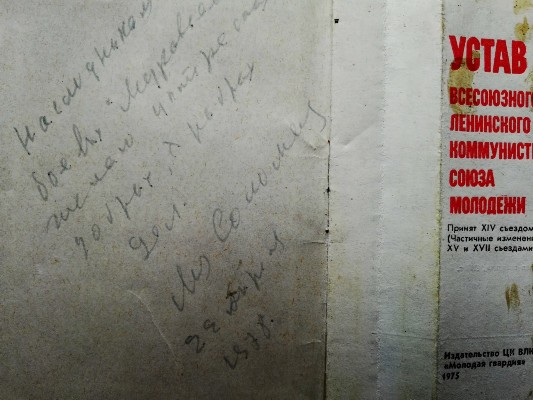 Наследникам
боевых
желаю
добрых и храбрых
дел.
22 апреля
1978.
УСТАВ
ВСЕСОЮЗНОГ
ЛЕНИНСКОГО
КОММУНИСТ
СОЮЗА
МОЛОДЕЖИ
Принят XIV съездом
(Частичные изменени
XV и XVII съездами
Издательство ЦК ВЛК
«Молодая гвардия»
1975